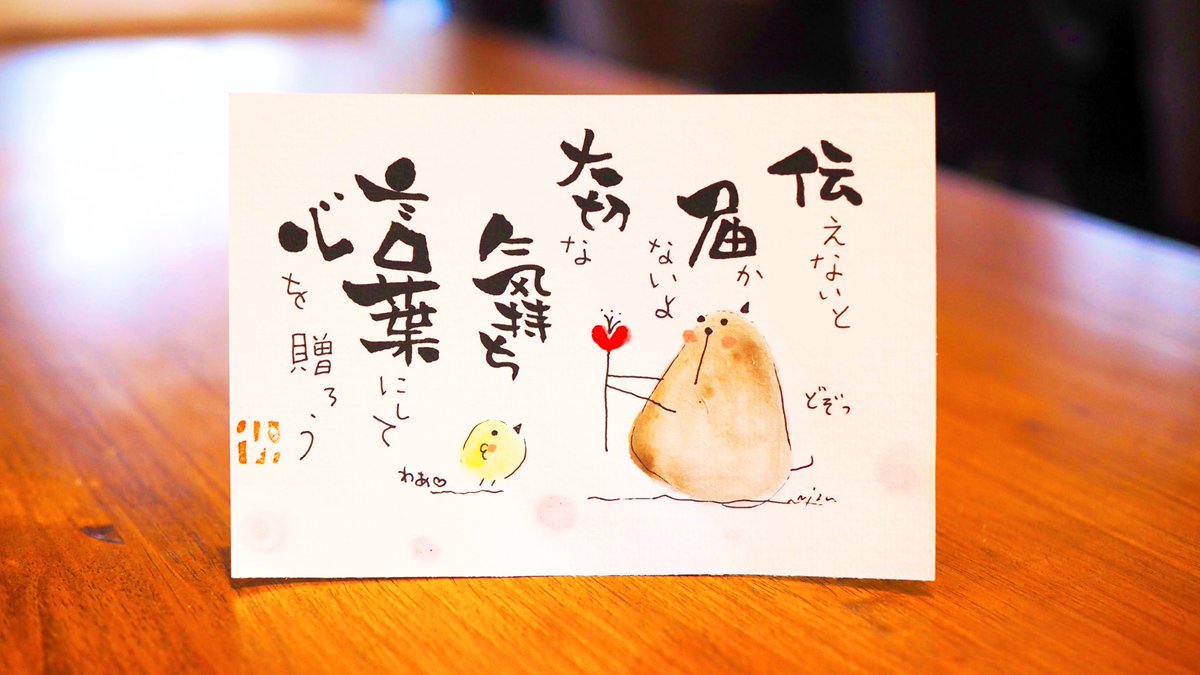 伝えないと
届かないよ
大切な
気持ち
言葉にして
心を贈ろう
どぞっ
わあ♡